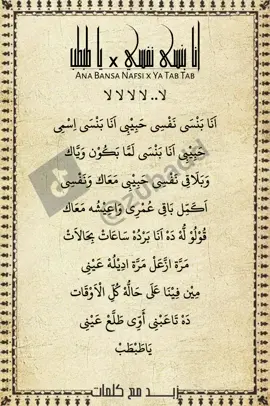 أنا بنسى نفسي x يا طبطب
ANA BANSA NAFSI X YA TAB TAB
لا.. لا لا لا لا
اَنَا بَنْسَى نَفْسِى حَبِيْبِى اَنَا بَنْسَى اِسْمِى
حَبِيْبِى اَنَا بَنْسَى لَمَّا بَكُوْن وَيَّاك
وَبَلَاقِى نَفْسِى حَبِيْبِى مَعَاك وَنَفْسِى
اَكَمِل بَاقِى عُمْرِى وَاَعِيْشُه مَعَاك
قُوْلُوْ لُهْ دَهْ اَنَا بَرْدُهْ سَاعَاتْ بِحَالَاتْ
مَرَّة اَزْعَلْ مَرَّة اَدِيْلُهْ عَيْنِى
مِيْن فِيْنَا عَلَى حَالُهْ كُلّ الْاَوْقَات
دَهْ تَاعَبْنِى أَوِى طَلَّعْ عَيْنِى
يَاطَبْطَبْ
زيد مع كلمات